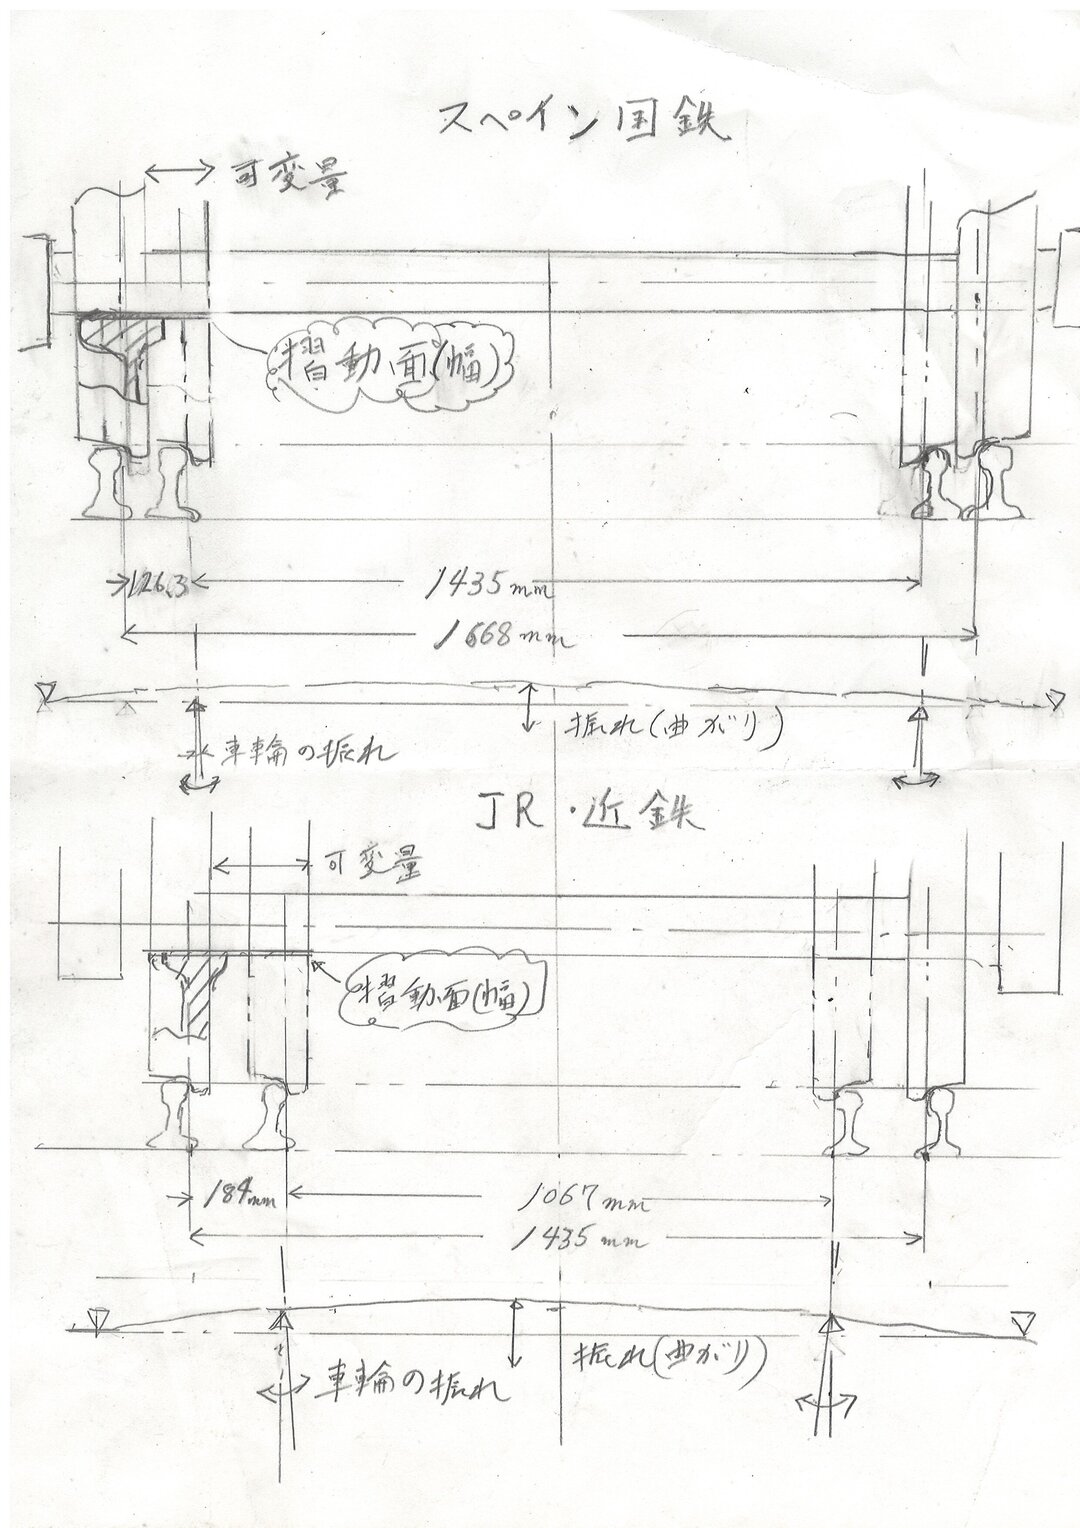 スペイン国鉄
可変量
摺動面(幅)
126.3
1435mm
1668mm
振れ(曲がり)
車輪の振れ
JR・近鉄
可変量
摺動面(幅)
184mm
1067mm
1435mm
振れ(曲がり)
車輪の振れ